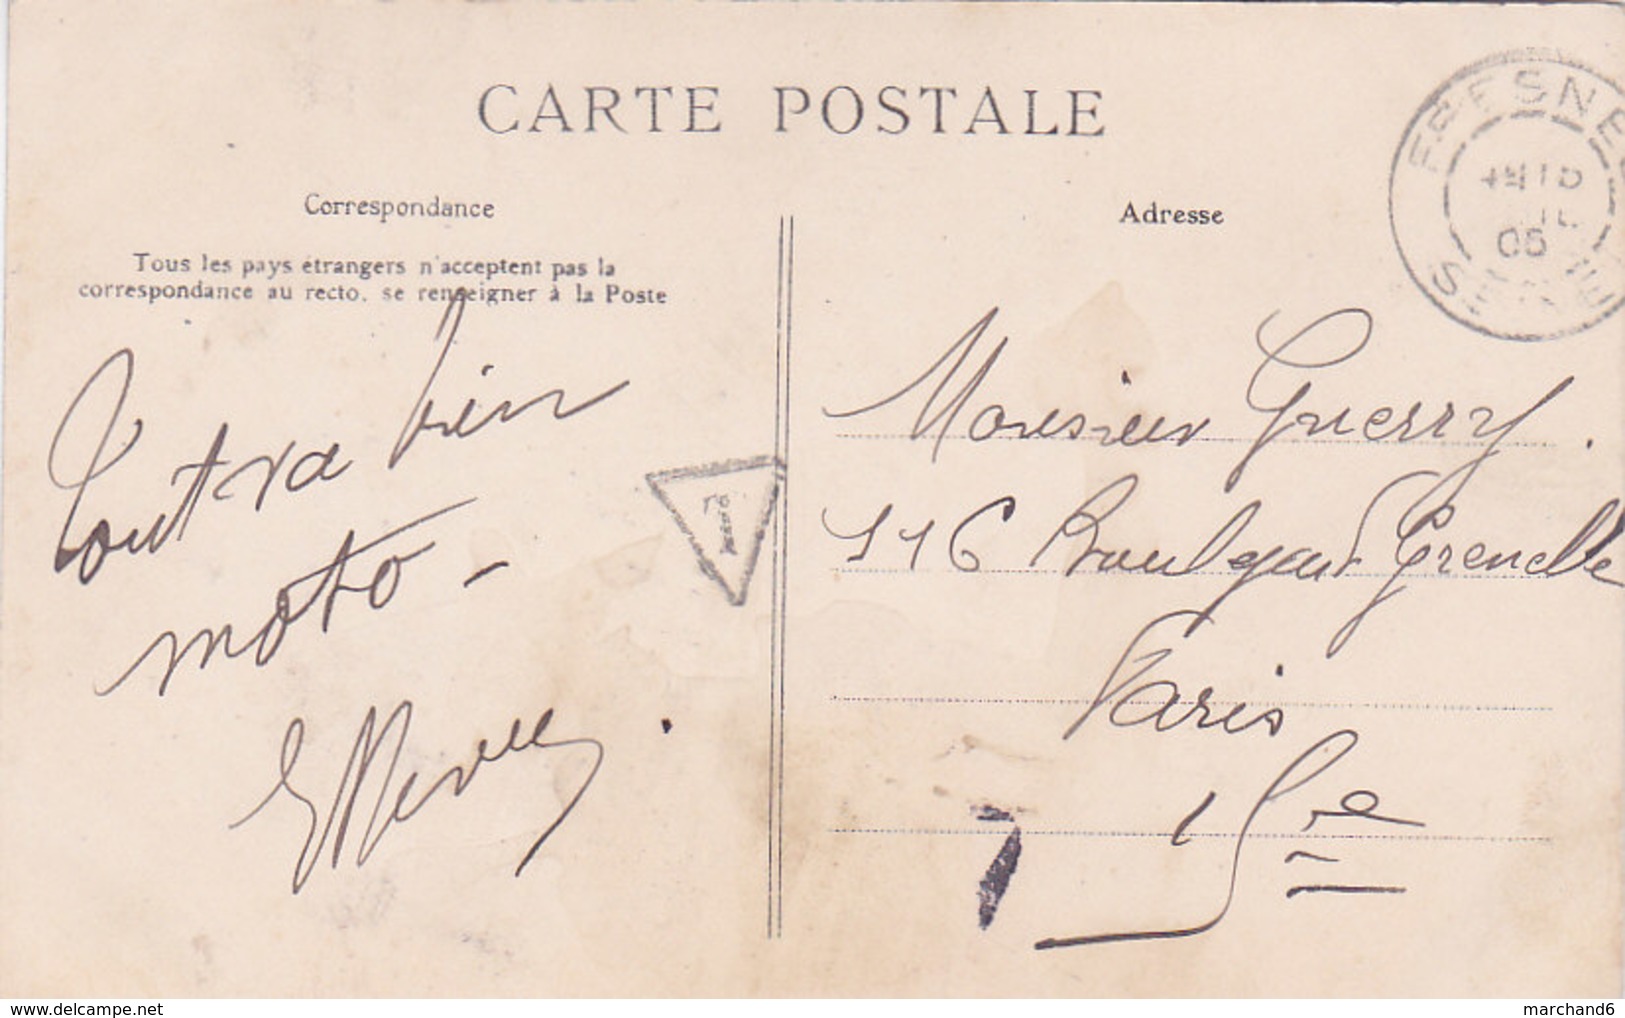 CARTE POSTALE
Correspondance
Tous les pays étrangers n'acceptent pas la
correspondance au recto, se renseigner à la Poste
Tout va bien
moto -
T
Adresse
FRESNES
05
SEINE
Monsieur Guerry.
116 Boulevard Grenelle
Paris
15e
marchand6